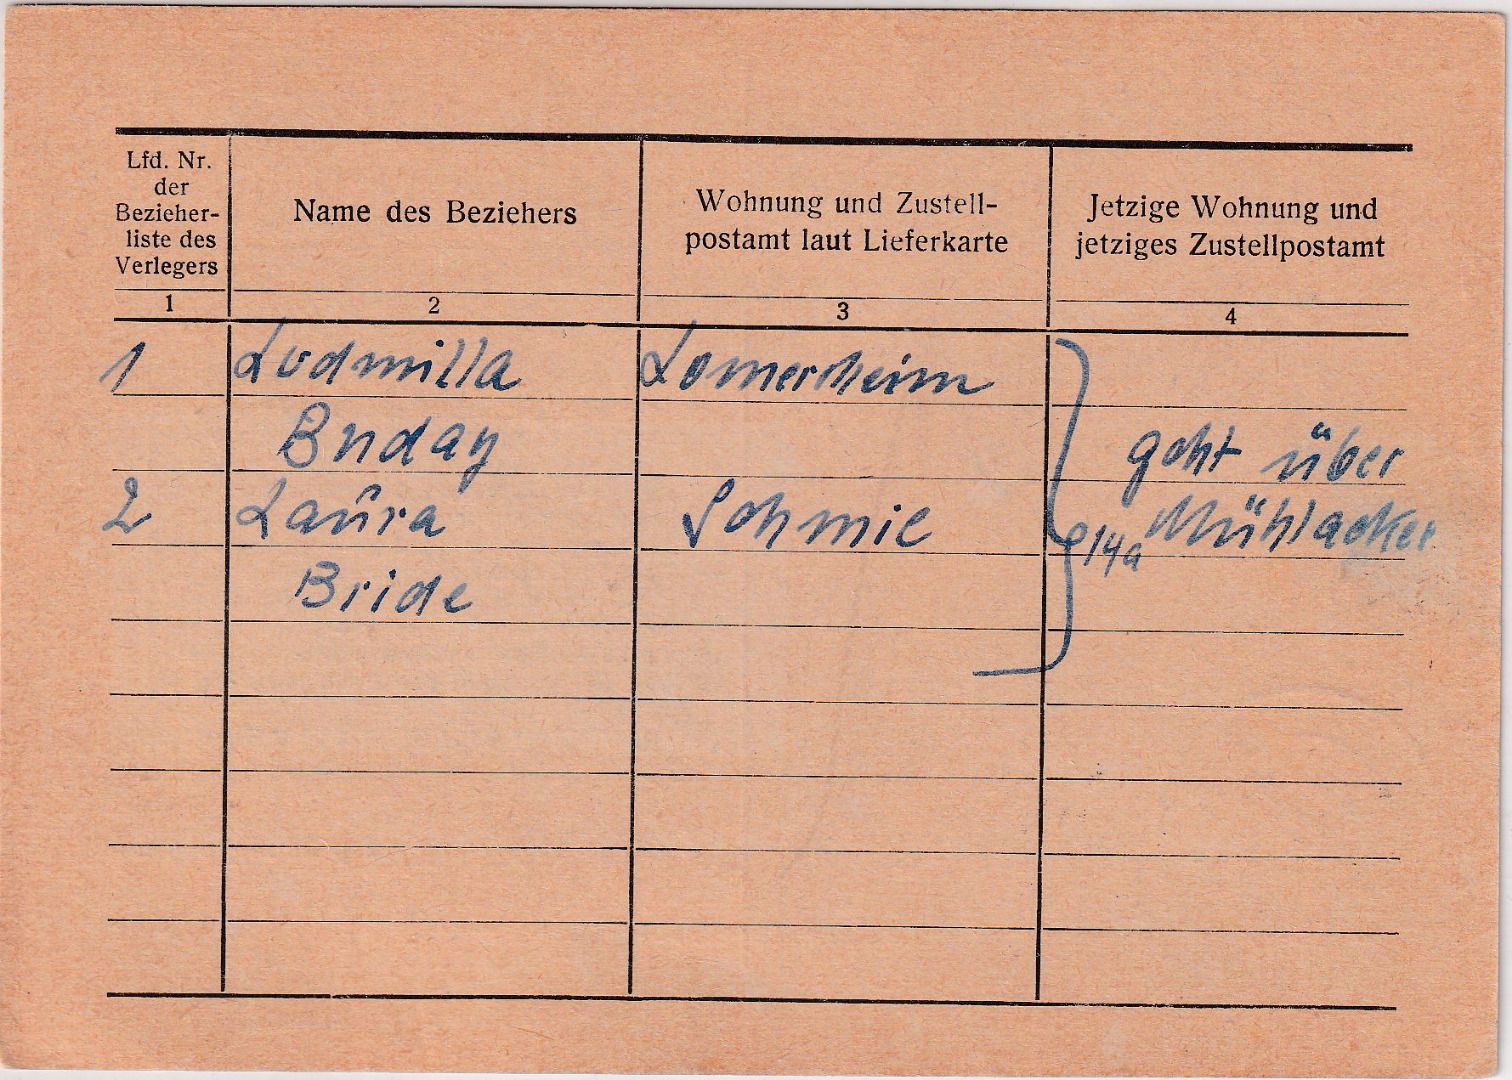 Lfd. Nr.
der
Bezieher-
liste des
Verlegers
Name des Beziehers
Wohnung und Zustell-
postamt laut Lieferkarte
Jetzige Wohnung und
jetziges Zustellpostamt
1
2
3
4
1 Ludmilla Lomersheim
Buday geht über
2 Laura Schmie 14a Mühlacker
Bride